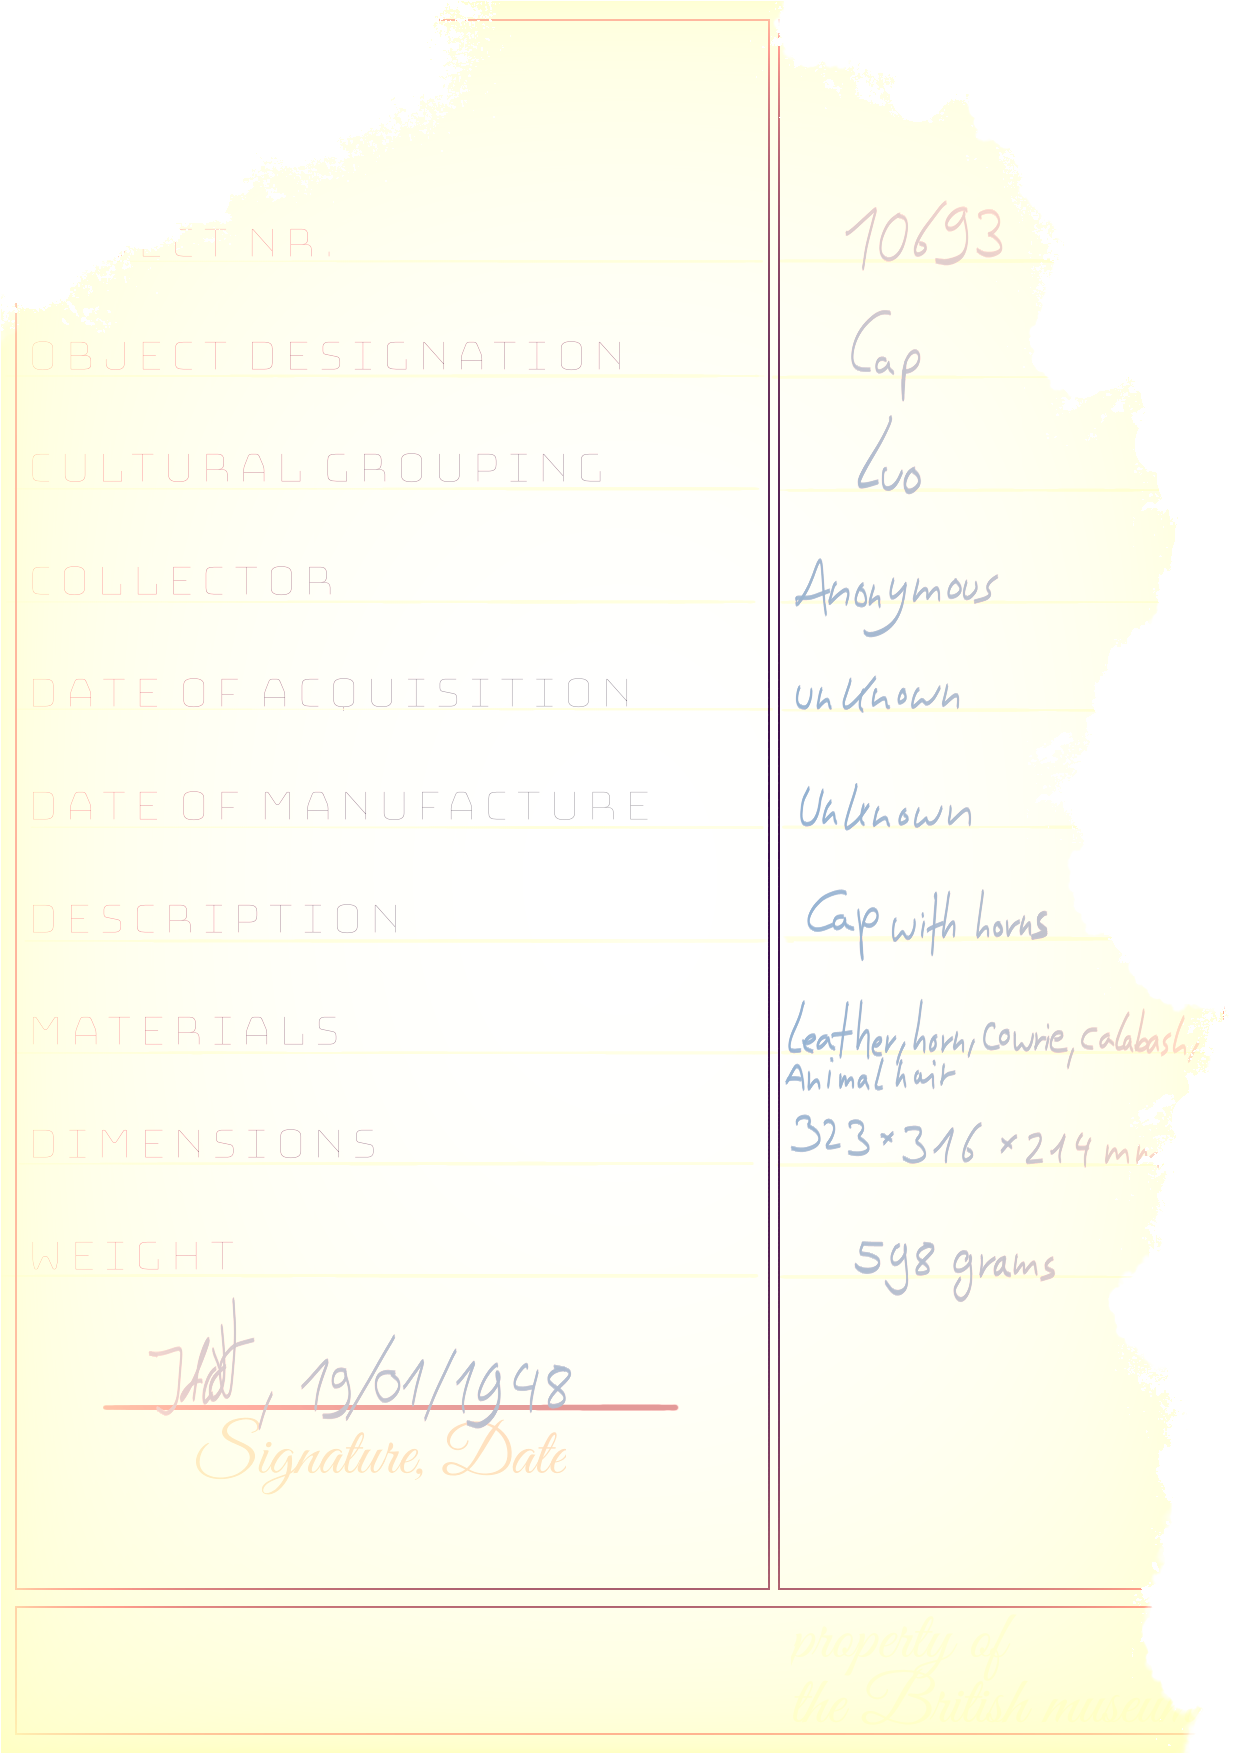 ECT NR. 10693
OBJECT DESIGNATION Cap
CULTURAL GROUPING Luo
COLLECTOR Anonymous
DATE OF ACQUISITION unknown
DATE OF MANUFACTURE Unknown
DESCRIPTION Cap with horns
MATERIALS Leather, horn, Cowrie, calabash,
Animal hair
DIMENSIONS 323 × 316 × 214 mm
WEIGHT 598 grams
, 19/01/1948
Signature, Date
property of
the British museum